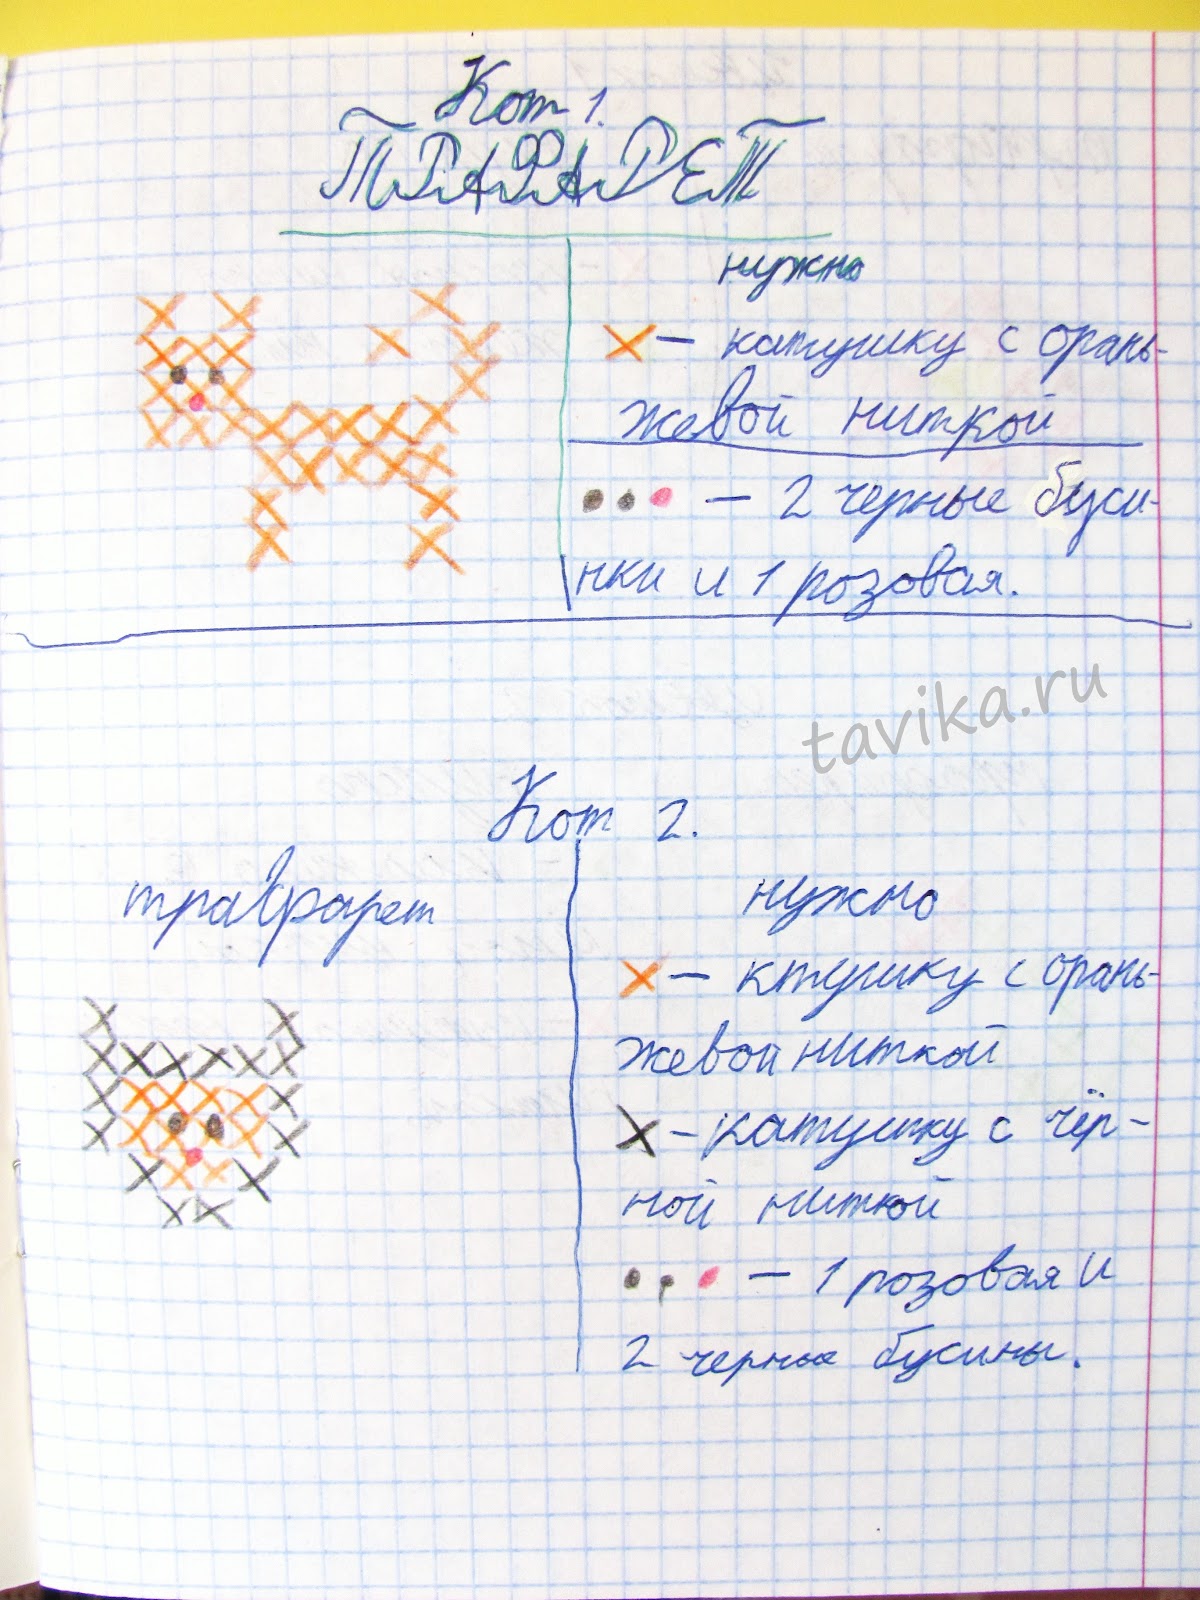 Кот 1.
ТРАФАРЕТ
нужно
х — катушку с орань-
жевой ниткой
— 2 черные буси-
нки и 1 розовая.
tavika.ru
Кот 2.
трафарет
нужно
х — ктушку с орань-
жевой ниткой
х — катушку с чёр-
ной ниткой
— 1 розовая и
2 черные бусины.